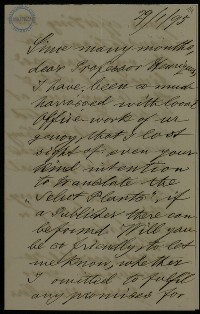 29/1/95
Since many months,
dear Professor Henriques,
I have been so much
harrassed with local
Office work of ur-
gency, that I lost
sight of even your
kind intention
to translate the
"Select Plants", if
a Publisher there can
be found. Will you
be so friendly, to let
me know, whether
I omitted to fulfil
any promises for